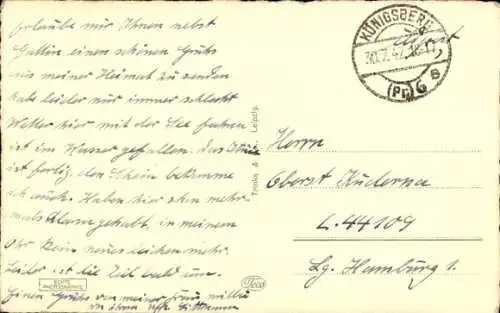 Erlaube mir Ihnen nebst
Gattin einen schönen Gruß
aus meiner Heimat zu senden
habe leider nur immer schlecht
Wetter hier mit der See fahren
ist im Wasser gefallen. Das
ist fertig, den Schein bekomme
ich auch. Haben hier schon mehr-
mals Alarm gehabt, in meinem
Ohr kein neues Zeichen mehr.
Leider ist die Zeit bald um.
Einen Gruß von meiner Frau
KÖNIGSBERG
30.7.42
(Pr) 6
Feldpost
Herrn
Oberst Kuderna
L. 44109
Lg. Hamburg 1.
Trinks & Leipzig.